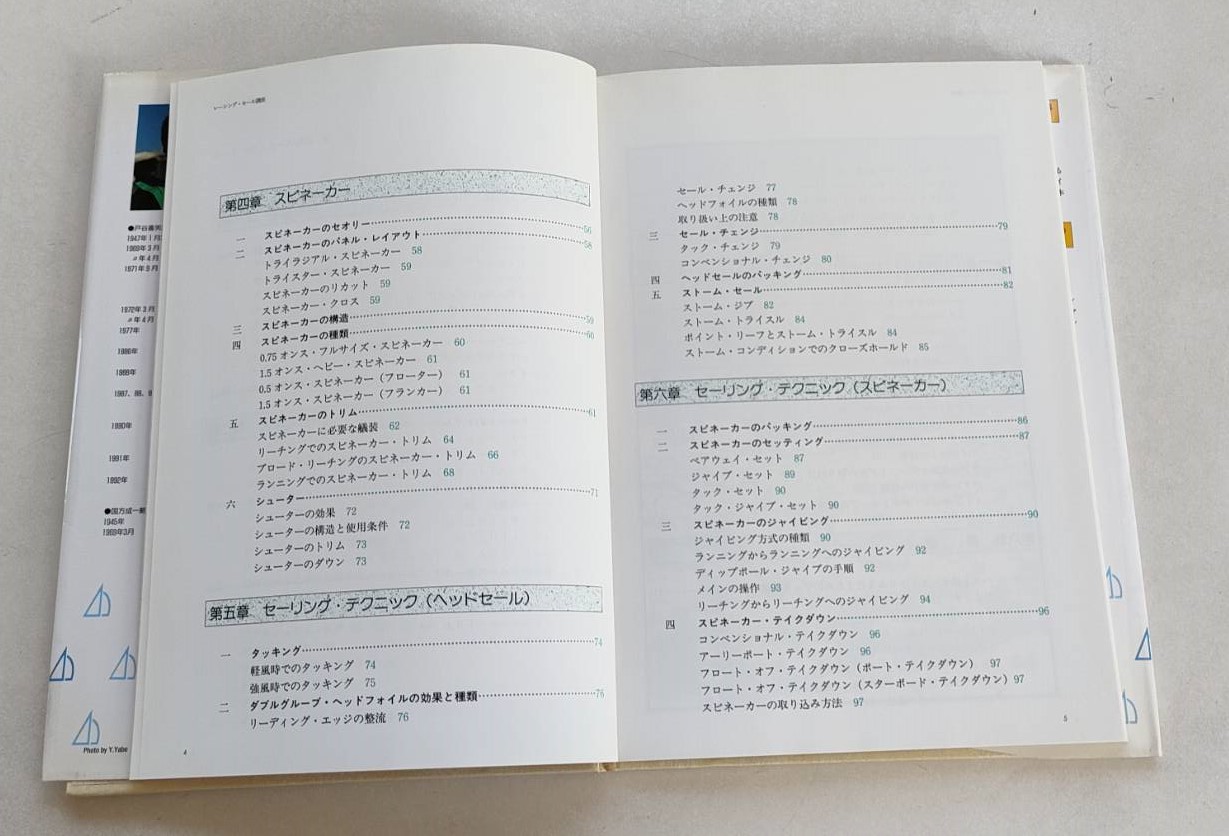 レーシング・セール講座
第四章 スピネーカー
一 スピネーカーのセオリー……56
二 スピネーカーのパネル・レイアウト……58
トライラジアル・スピネーカー 58
トライスター・スピネーカー 59
スピネーカーのリカット 59
スピネーカー・クロス 59
三 スピネーカーの構造……59
四 スピネーカーの種類……60
0.75オンス・フルサイズ・スピネーカー 60
1.5オンス・ヘビー・スピネーカー 61
0.5オンス・スピネーカー（フローター） 61
1.5オンス・スピネーカー（フランカー） 61
五 スピネーカーのトリム……61
スピネーカーに必要な艤装 62
リーチングでのスピネーカー・トリム 64
ブロード・リーチングのスピネーカー・トリム 66
ランニングでのスピネーカー・トリム 68
六 シューター……71
シューターの効果 72
シューターの構造と使用条件 72
シューターのトリム 73
シューターのダウン 73
第五章 セーリング・テクニック（ヘッドセール）
一 タッキング……74
軽風時でのタッキング 74
強風時でのタッキング 75
二 ダブルグループ・ヘッドフォイルの効果と種類……76
リーディング・エッジの整流 76
4
セール・チェンジ 77
ヘッドフォイルの種類 78
取り扱い上の注意 78
三 セール・チェンジ……79
タック・チェンジ 79
コンベンショナル・チェンジ 80
四 ヘッドセールのパッキング……81
五 ストーム・セール……82
ストーム・ジブ 82
ストーム・トライスル 84
ポイント・リーフとストーム・トライスル 84
ストーム・コンディションでのクローズホールド 85
第六章 セーリング・テクニック（スピネーカー）
一 スピネーカーのパッキング……86
二 スピネーカーのセッティング……87
ベアウェイ・セット 87
ジャイブ・セット 89
タック・セット 90
タック・ジャイブ・セット 90
三 スピネーカーのジャイビング……90
ジャイビング方式の種類 90
ランニングからランニングへのジャイビング 92
ディップポール・ジャイブの手順 92
メインの操作 93
リーチングからリーチングへのジャイビング 94
四 スピネーカー・テイクダウン……96
コンベンショナル・テイクダウン 96
アーリーポート・テイクダウン 96
フロート・オフ・テイクダウン（ポート・テイクダウン） 97
フロート・オフ・テイクダウン（スターボード・テイクダウン）97
スピネーカーの取り込み方法 97
5
1947年1月
1969年3月
〃年4月
1971年9月
1972年3月
〃年4月
1977年
1986年
1990年
1991年
1992年
1945年
1969年3月
Photo by Y.Yabe